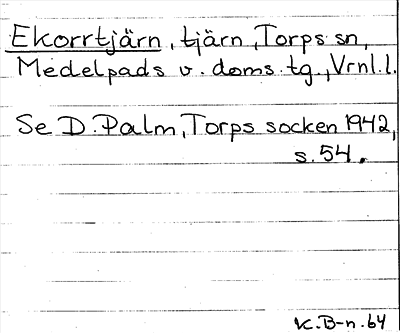 Ekorrtjärn, tjärn, Torps sn,
Medelpads v. doms.tg., Vrnl.l.
Se D. Palm, Torps socken 1942,
s.54.
K.B-n.64